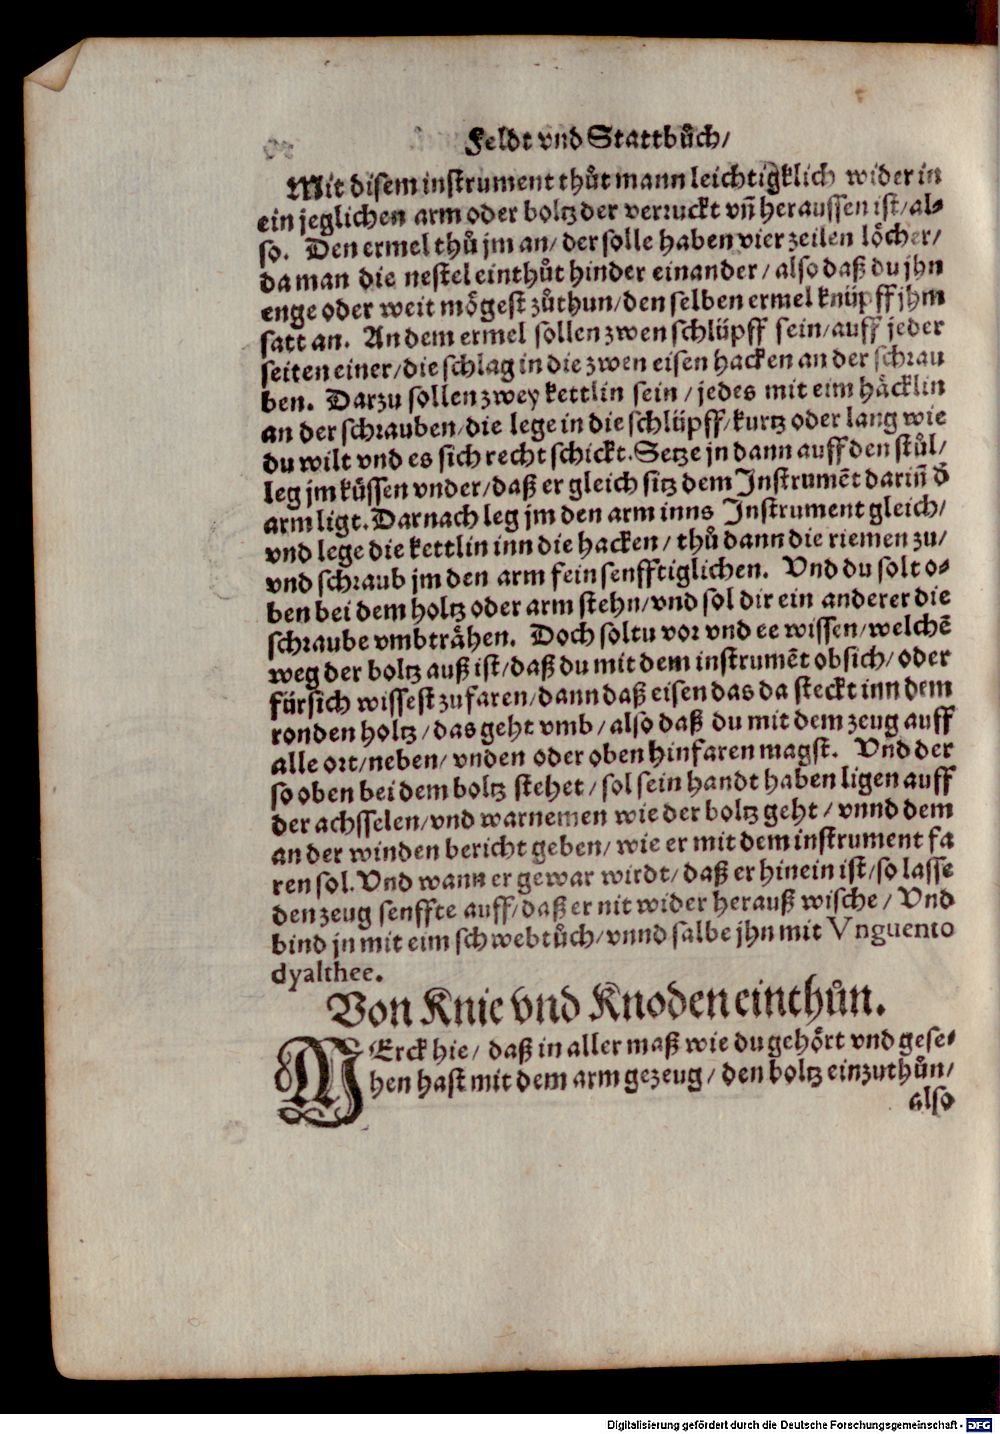 Feldt vnd Stattbůch/
Mit disem instrument thůt mann leichtigklich wider in
ein jeglichen arm oder boltz der verruckt vñ heraussen ist/al-
so. Den ermel thů jm an/ der solle haben vier zeilen löcher/
da man die nestel einthůt hinder einander/ also daß du jhn
enge oder weit mögest zůthun/den selben ermel knüpff jhm
satt an. An dem ermel sollen zwen schlüpff sein/auff jeder
seiten einer/die schlag in die zwen eisen hacken an der schrau
ben. Darzu sollen zwey kettlin sein/jedes mit eim häcklin
an der schrauben/die lege in die schlüpff/kurtz oder lang wie
du wilt vnd es sich recht schickt. Setze jn dann auff den stůl/
leg jm küssen vnder/daß er gleich sitz dem Instrumēt dariñ d̄
arm ligt. Darnach leg jm den arm inns Instrument gleich/
vnd lege die kettlin inn die hacken/ thů dann die riemen zu/
vnd schraub jm den arm fein senfftiglichen. Vnd du solt o-
ben bei dem holtz oder arm stehn/vnd sol dir ein anderer die
schraube vmbträhen. Doch soltu vor vnd ee wissen/welchē
weg der boltz auß ist/daß du mit dem instrumēt obsich/oder
fürsich wissest zufaren/dann daß eisen das da steckt inn dem
ronden holtz/das geht vmb/also daß du mit dem zeug auff
alle ort/neben/vnden oder oben hinfaren magst. Vnd der
so oben bei dem boltz stehet/sol sein handt haben ligen auff
der achsselen/vnd warnemen wie der boltz geht/vnnd dem
an der winden bericht geben/wie er mit dem instrument fa
ren sol. Vnd wann er gewar wirdt/daß er hinein ist/so lasse
den zeug senffte auff/daß er nit wider herauß wische/Vnd
bind jn mit eim schwebtůch/vnnd salbe jhn mit Vnguento
dyalthee.
Von Knie vnd Knoden einthůn.
MErck hie/ daß in aller maß wie du gehört vnd gese-
hen hast mit dem arm gezeug/den boltz einzuthůn/
also
Digitalisierung gefördert durch die Deutsche Forschungsgemeinschaft - DFG